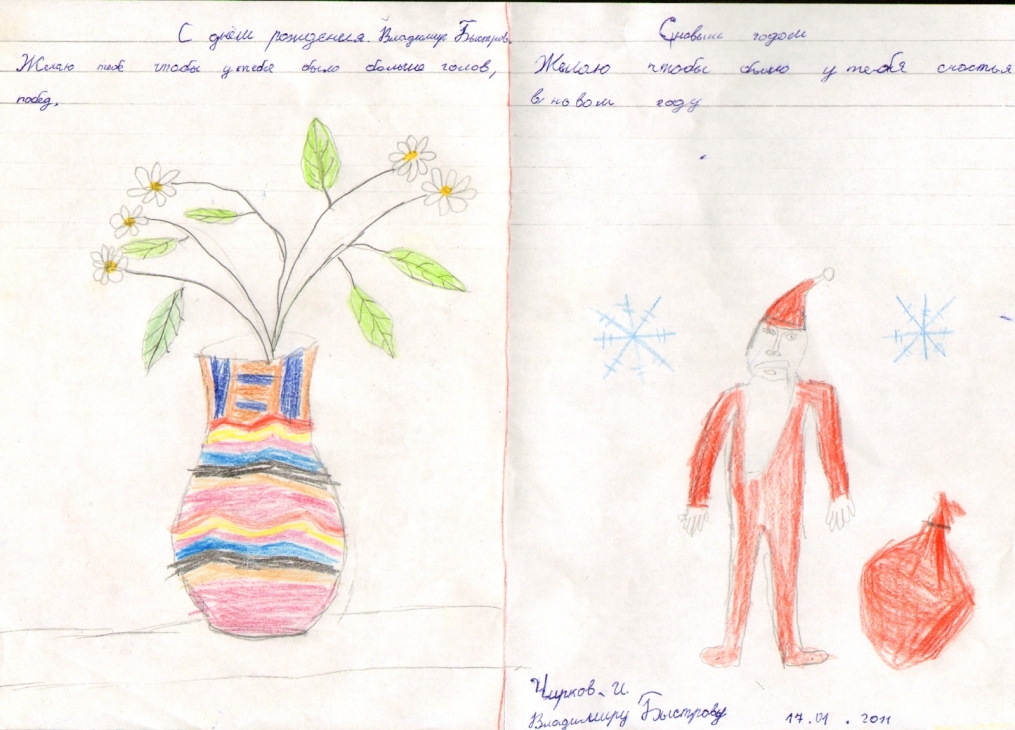 С днём рождения. Владимир Быстров.
Желаю тебе чтобы у тебя было больше голов,
побед.
С новым годом
Желаю чтобы было у тебя счастья
в новом году
Чирков. И.
Владимиру Быстрову 17.01.2011